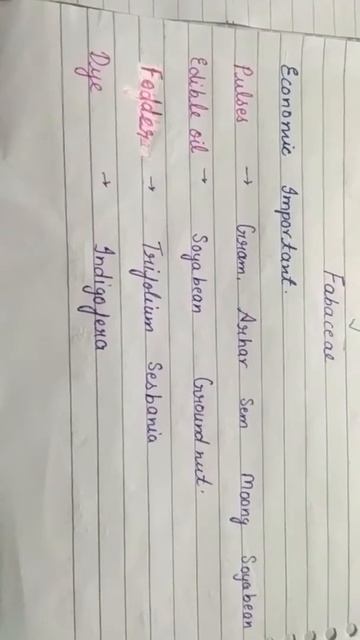 Fabaceae
Economic Important.
Pulses → Gram, Arhar Sem Moong Soyabean
Edible oil → Soyabean Groundnut.
Fodder → Trifolium Sesbania
Dye → Indigofera